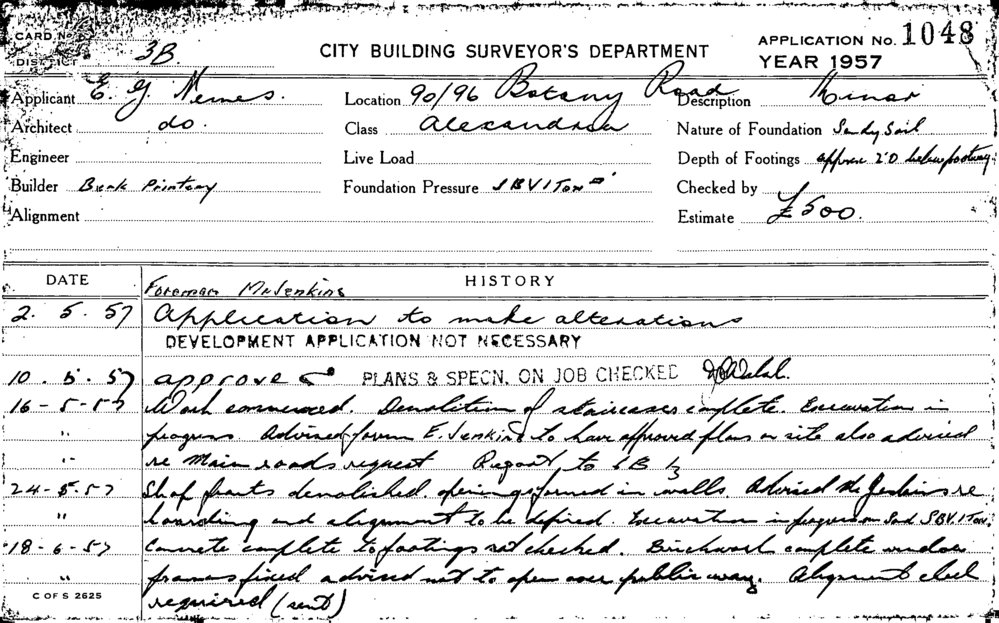 CARD No.
DISTRICT 3B
CITY BUILDING SURVEYOR'S DEPARTMENT
APPLICATION No. 1048
YEAR 1957
Applicant E. G. Nemes. Location 90/96 Botany Road Description Minor
Architect do. Class Alexandria Nature of Foundation Sandy Soil
Engineer Live Load Depth of Footings approx 2'0 below footway
Builder Bunk Printery Foundation Pressure SBV 1 Ton □' Checked by
Alignment Estimate £500.
DATE HISTORY
Foreman Mr Jenkins
2. 5. 57 Application to make alterations
DEVELOPMENT APPLICATION NOT NECESSARY
10. 5. 57 approve PLANS & SPECN. ON JOB CHECKED
16-5-57 Work commenced. Demolition of staircases complete. Excavation in
" progress. Advised foreman E. Jenkins to have approved plans on site also advised
" re Main roads request Report to
24-5-57 Shop fronts demolished. openings formed in walls. Advised Mr Jenkins re
" hoarding and alignment to be defined. Excavation in progress on Sand SBV. 1 Ton.
18-6-57 Concrete complete to footings not checked. Brickwork complete window
" frames fixed advised not to open over public way. Alignment check
required (sent)
C OF S 2625